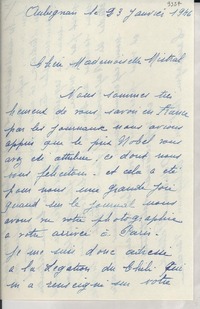 Aubignan le 23 Janvier 1946
Chère Mademoiselle Mistral
Nous sommes très
heureux de vous savoir en France
par les journaux nous avons
appris que le prix Nobel vous
avez été attribué, ce dont nous
vous félicitons. et cela a été
pour nous une grande joie
quand sur le journal nous
avons vu votre photographie
a votre arrivée à Paris.
Je me suis donc adressé
a la Légation du Chili qui
m'a renseigné sur votre